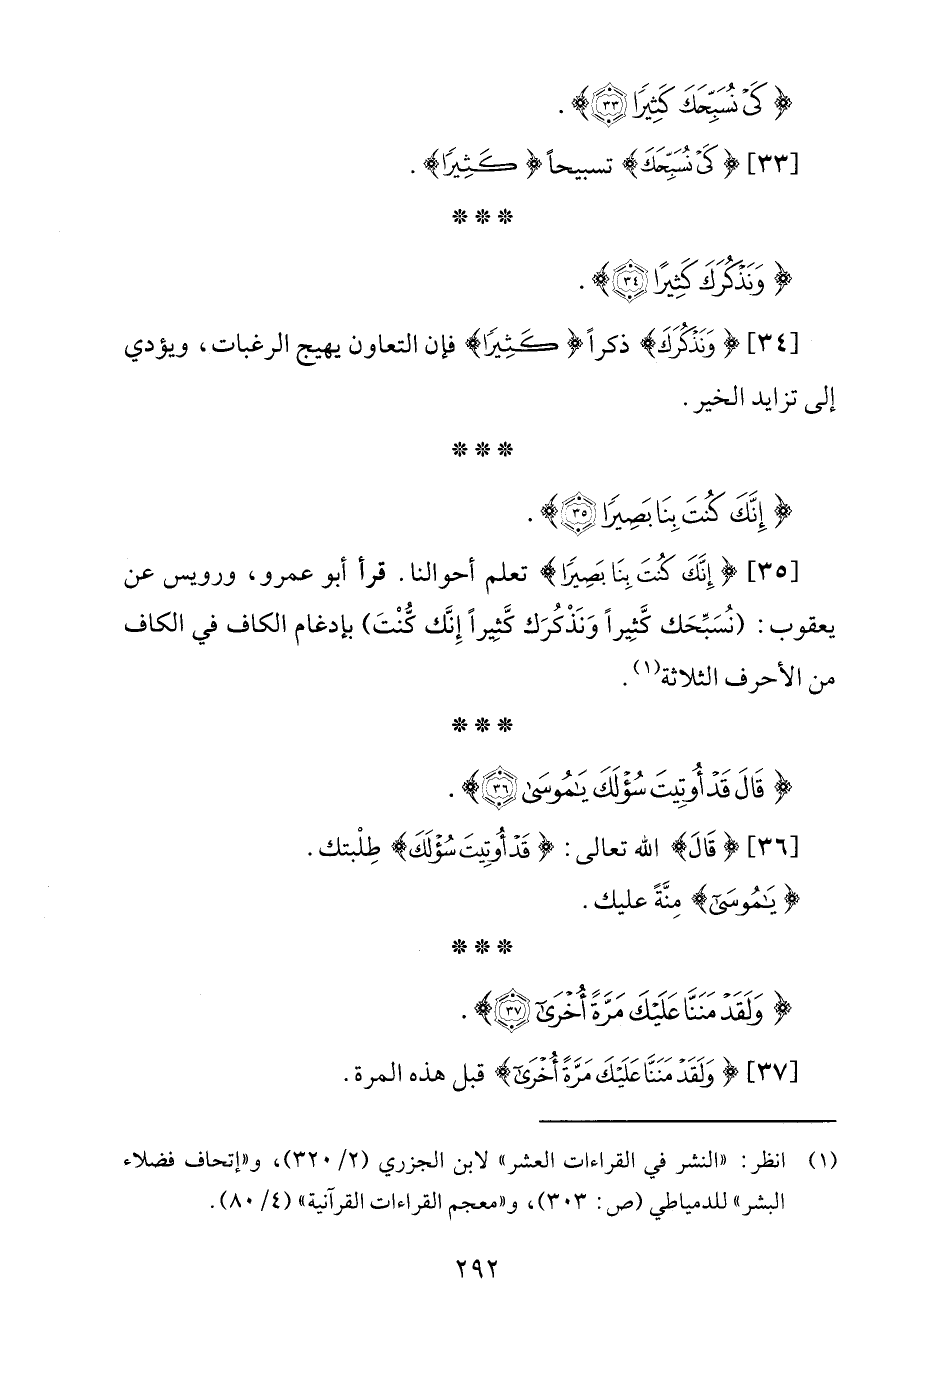 ﴿ كَىْ نُسَبِّحَكَ كَثِيرًا ٣٣﴾ .
[٣٣] ﴿ كَىْ نُسَبِّحَكَ﴾ تسبيحاً ﴿ كَثِيرًا﴾ .
* * *
﴿ وَنَذْكُرَكَ كَثِيرًا ٣٤﴾ .
[٣٤] ﴿ وَنَذْكُرَكَ﴾ ذكراً ﴿ كَثِيرًا﴾ فإن التعاون يهيج الرغبات، ويؤدي
إلى تزايد الخير .
* * *
﴿ إِنَّكَ كُنتَ بِنَا بَصِيرًا ٣٥﴾ .
[٣٥] ﴿ إِنَّكَ كُنتَ بِنَا بَصِيرًا ﴾ تعلم أحوالنا. قرأ أبو عمرو، ورويس عن
يعقوب: (نُسَبِّحَك كَّثِيراً وَنَذْكُرَك كَّثِيراً إِنَّك كُّنْتَ) بإدغام الكاف في الكاف
من الأحرف الثلاثة(١) .
* * *
﴿ قَالَ قَدْ أُوتِيتَ سُؤْلَكَ يَٰمُوسَىٰ ٣٦﴾ .
[٣٦] ﴿ قَالَ﴾ الله تعالى: ﴿ قَدْ أُوتِيتَ سُؤْلَكَ﴾ طِلْبتك .
﴿ يَٰمُوسَىٰ﴾ مِنَّةً عليك .
* * *
﴿ وَلَقَدْ مَنَنَّا عَلَيْكَ مَرَّةً أُخْرَىٰٓ ٣٧﴾ .
[٣٧] ﴿ وَلَقَدْ مَنَنَّا عَلَيْكَ مَرَّةً أُخْرَىٰٓ﴾ قبل هذه المرة .
(١) انظر: «النشر في القراءات العشر» لابن الجزري (٢/ ٣٢٠)، و«إتحاف فضلاء
البشر» للدمياطي (ص: ٣٠٣)، و«معجم القراءات القرآنية» (٤/ ٨٠).
٢٩٢